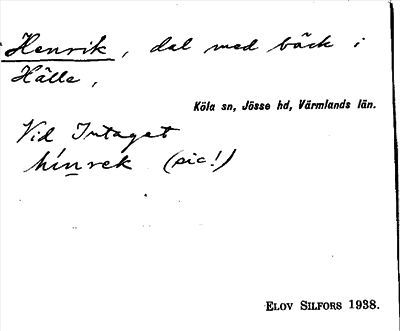 Henrik, dal med bäck i
Hälle,
Köla sn, Jösse hd, Värmlands län.
Vid Intaget
hínrek (sic!)
ELOV SILFORS 1938.